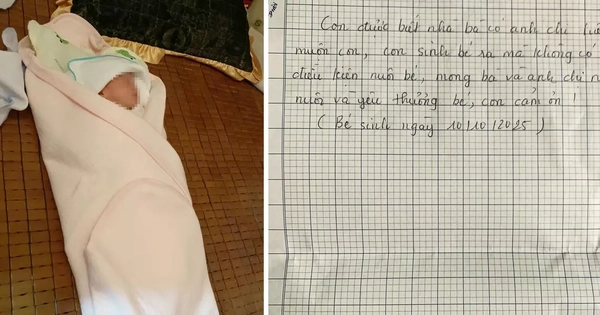 Con được biết nhà bà có anh chị
muốn con, con sinh bé ra mà không có
điều kiện nuôi bé, mong bà và anh chị
nuôi và yêu thương bé, con cảm ơn!
( Bé sinh ngày 10/10/2025 )